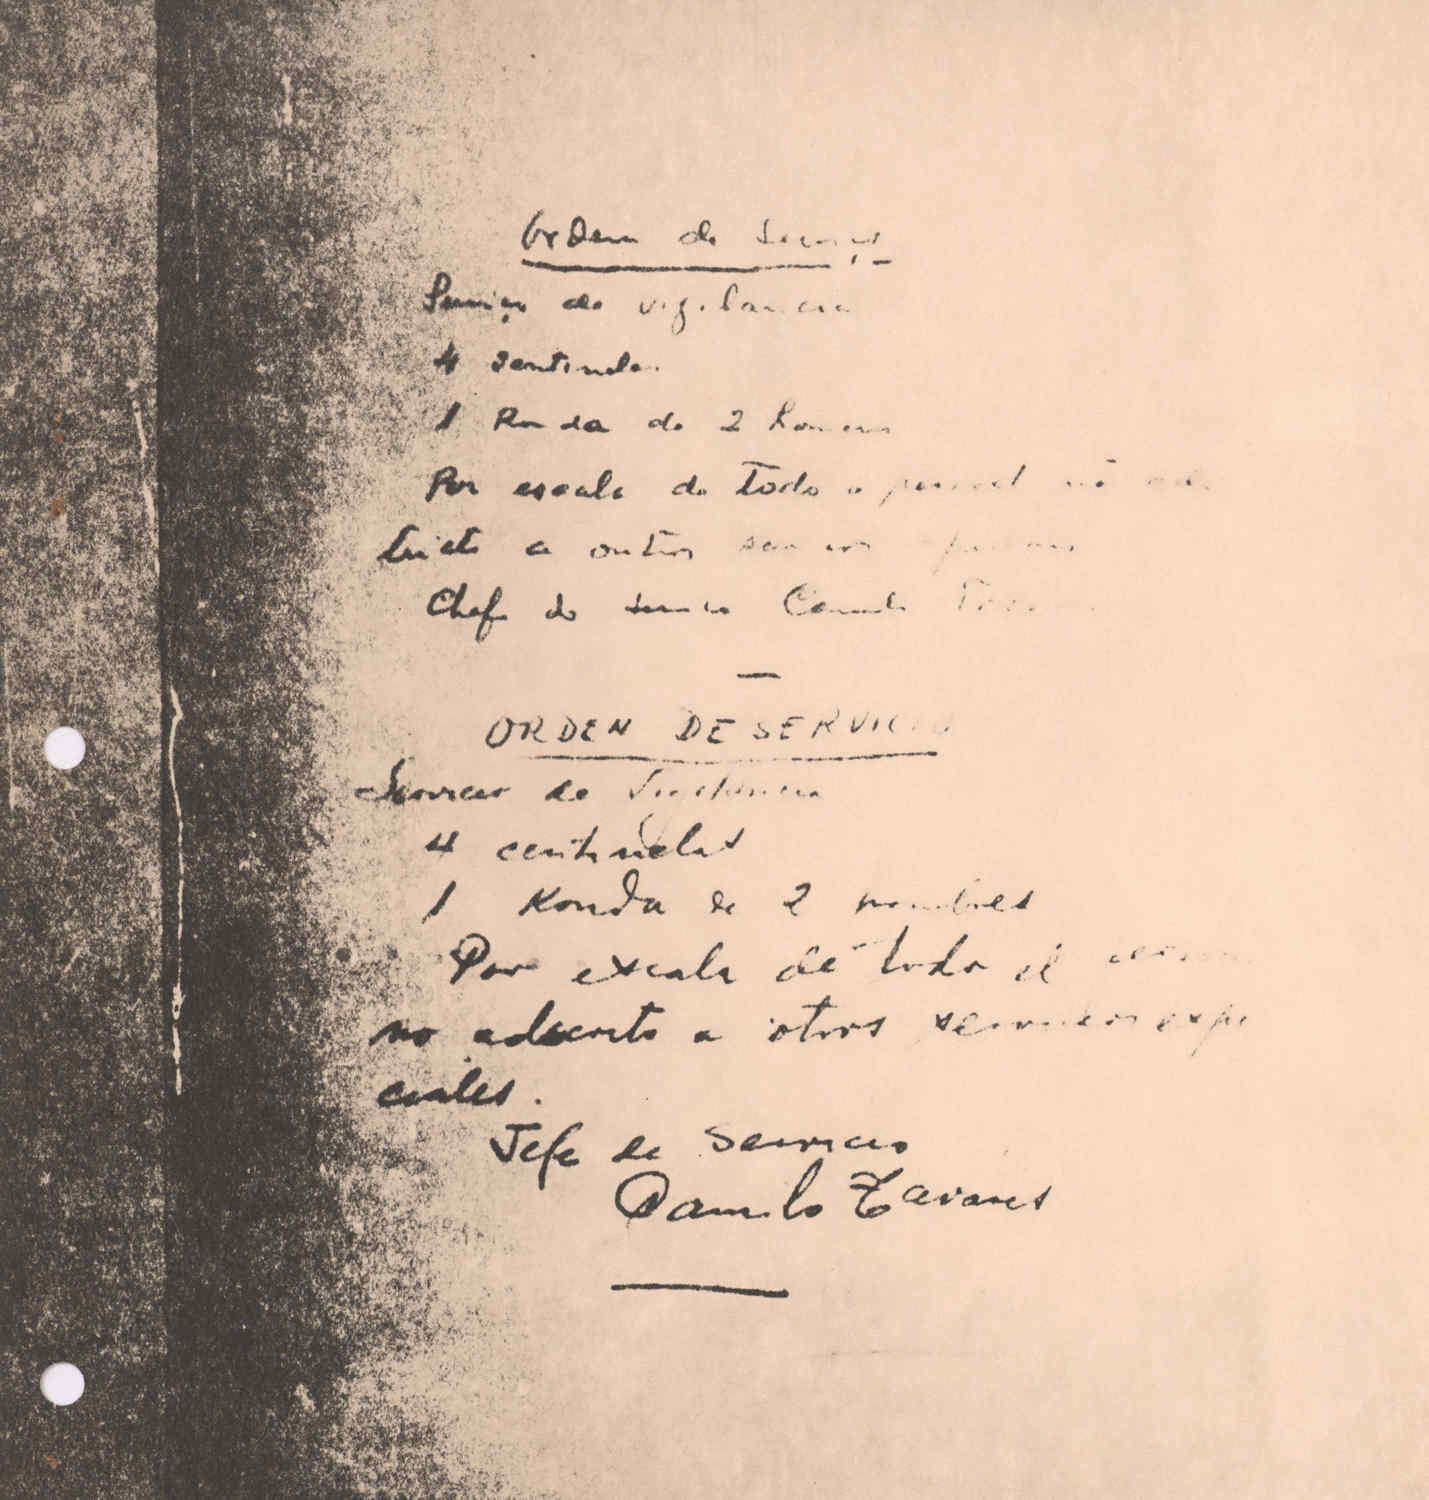 Ordem de Serviço
Serviço de vigilancia
4 sentinelas
1 Ronda de 2 homens
Por escala de todo o pessoal não
a outros serviços
Chefe de serviço Camilo
ORDEN DE SERVICIO
Servicio de Vigilancia
4 centinelas
1 Ronda de 2 hombres
Por escala de todo el
no adscrito a otros servicios espe
ciales.
Jefe de Servicio
Camilo Tavares